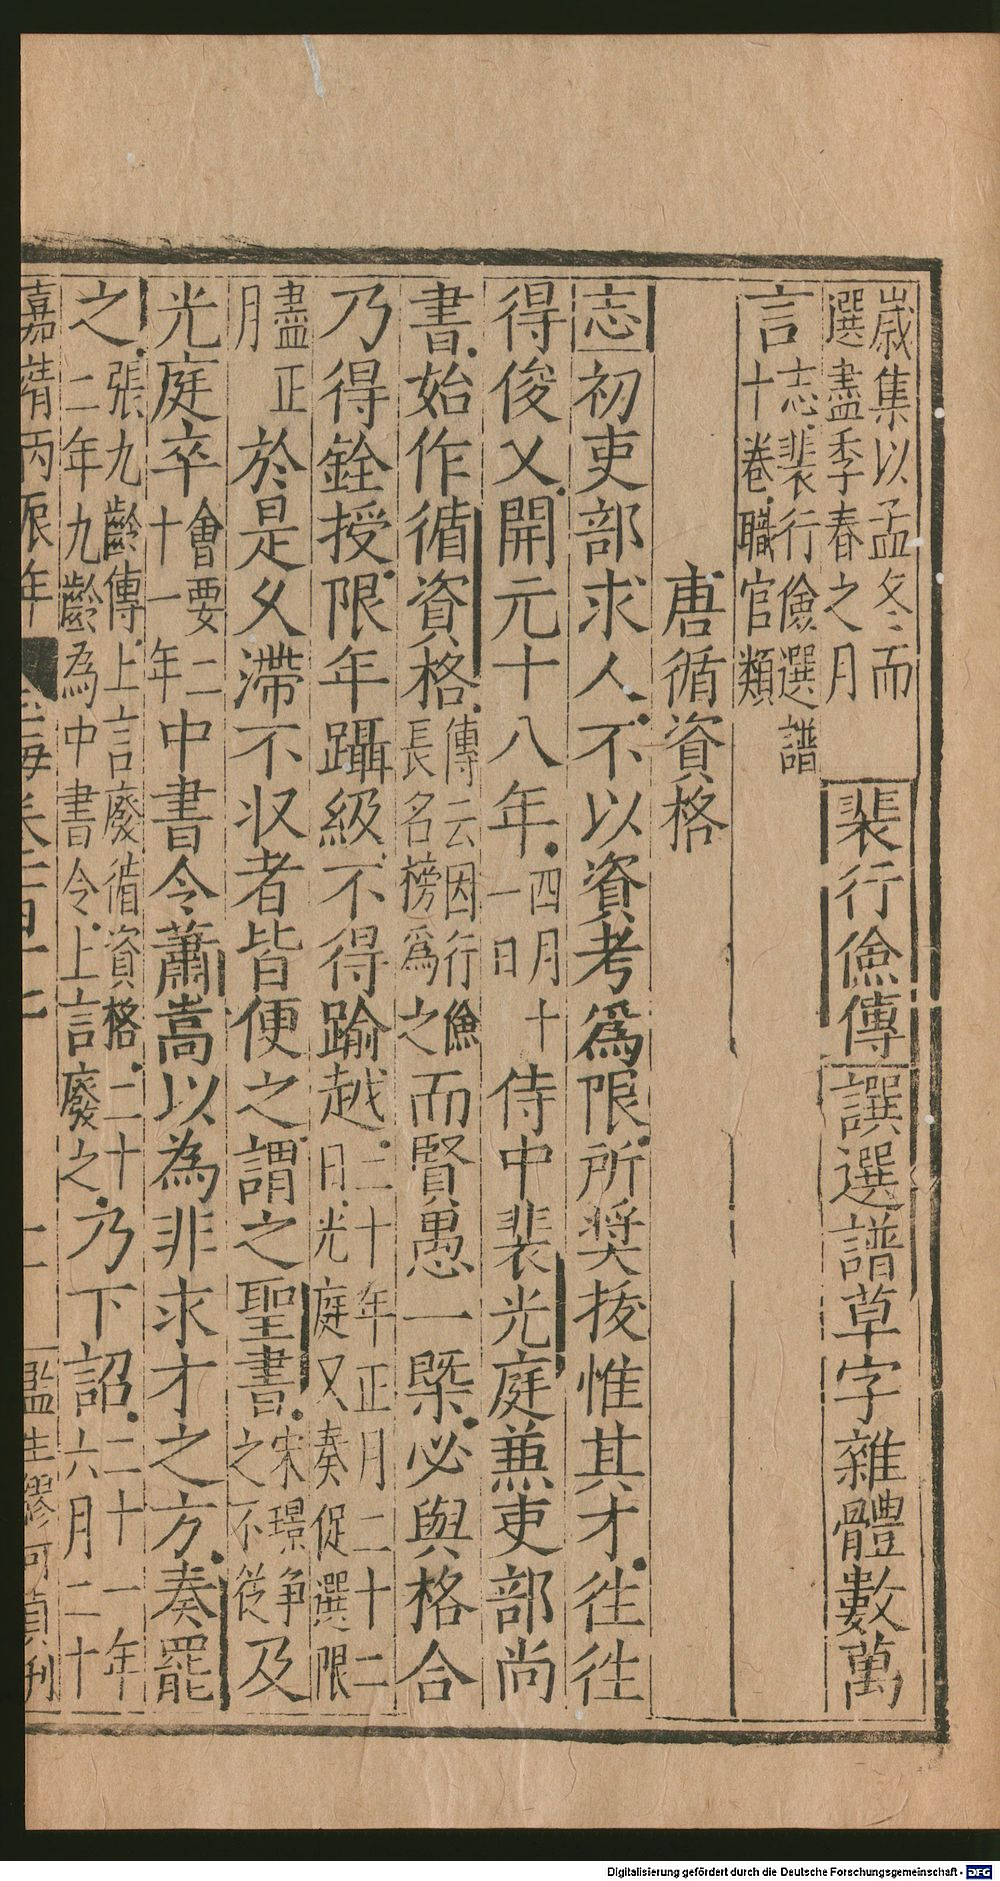 歲集以孟冬而
選盡季春之月
裴行儉傳譔選譜草字雜體數萬
言
志裴行儉選譜
十卷職官類
唐循資格
志初吏部求人不以資考爲限所奨拔惟其才徃徃
得俊乂開元十八年
四月十
一日
侍中裴光庭兼吏部尚
書始作循資格
傳云因行儉
長名榜爲之
而賢愚一槩必與格合
乃得銓授限年躡級不得踰越
二十年正月二十二
日光庭又奏促選限
盡正
月
於是久滯不収者皆便之謂之聖書
宋璟争
之不從
及
光庭卒
會要二
十一年
中書令蕭嵩以為非求才之方奏罷
之
張九齡傳上言廢循資格二十
二年九齡為中書令上言廢之
乃下詔
二十一年
六月二十
嘉靖丙辰年 玉海卷一百一十七 十一 監生繆可貞刊
Digitalisierung gefördert durch die Deutsche Forschungsgemeinschaft - DFG